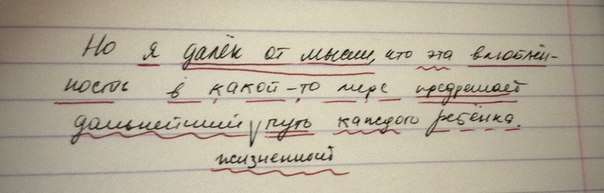 Но я далёк от мысли, что эта влюблён-
ность в какой-то мере предрешает
дальнейший путь каждого ребёнка.
жизненный